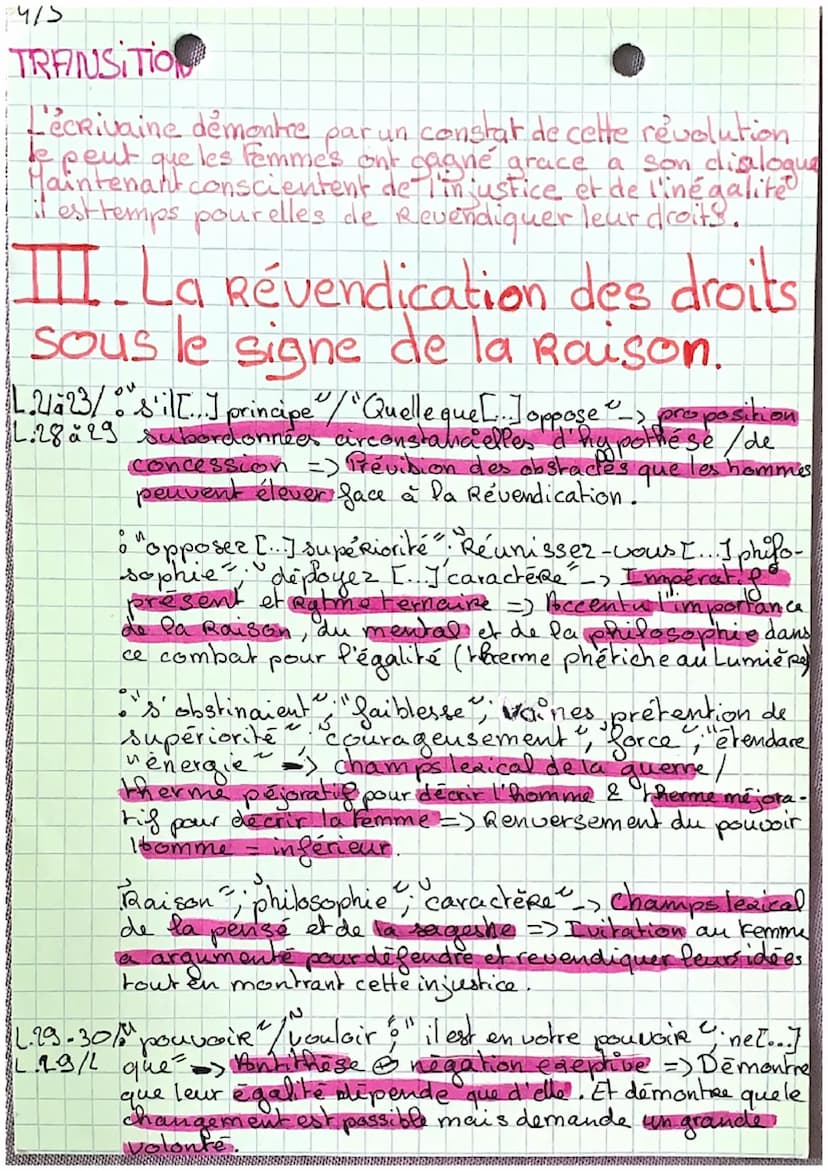 4/5
TRANSITION
L'écrivaine démontre par un constat de cette révolution
le peut que les femmes ont gagné grace a son dialogue
Maintenant conscientent de l'injustice et de l'inégalité
il est temps pour elles de Revendiquer leur droits.
III. La Révendication des droits
sous le signe de la Raison.
L.21à23/ : "s'il[...] principe"/"Quelle que[...] oppose" -> proposition
L.28 à 29 subordonnées circonstancielles d'hypothése /de
concession => Prévision des obstacles que les hommes
peuvent élever face à la Révendication.
: "opposez [...] supériorité" "Réunissez-vous [...] philo-
sophie"; "déployez [...] caractère" -> Impératif
présent et Rytme ternaire => Accentu l'importance
de la Raison, du mental et de la philosophie dans
ce combat pour l'égalité (therme phétiche au Lumière)
: "s'obstinaient"; "faiblesse"; vaines prétention de
supériorité"; "courageusement"; "force"; "étendare
"énergie" -> champs lexical de la guerre /
therme péjoratif pour décrir l'homme & therme méjora-
tif pour décrir la femme => Renversement du pouvoir
Homme = inférieur.
"Raison"; "philosophie"; "caractère" -> Champs lexical
de la pensé et de la sagesse => Ivitation au Femme
a argumenté pour défendre et revendiquer leurs idées
tout en montrant cette injustice.
L.29-30/: "pouvoir"/"vouloir": "il est en votre pouvoir"; ne[...]
L.29/ que" -> Antithèse négation exeptive => Démontre
que leur égalité dépende que d'elle. Et démontre que le
changement est possible mais demande un grande
volonté.